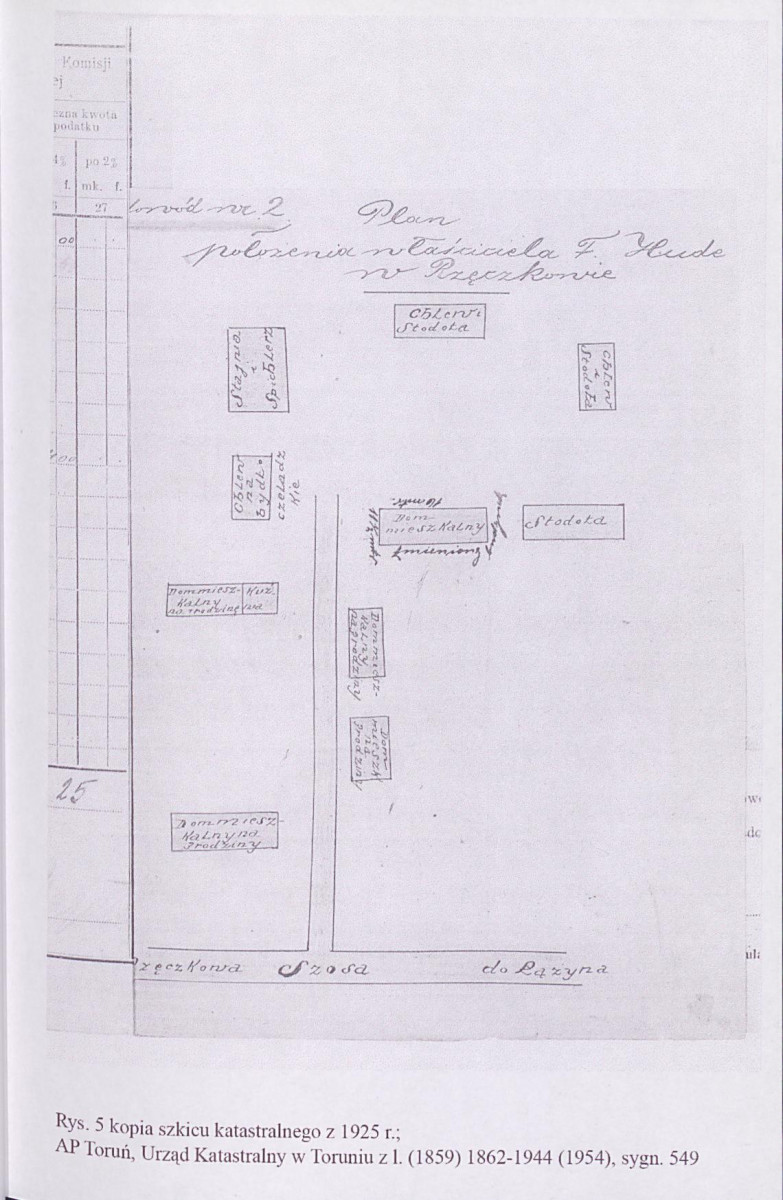 Komisji
ej
zna kwota
podatku
4% po 2%
f. mk. f.
27
00
00
25
dowód nr 2.
Plan
położenia właściciela F. Hude
w Rzęczkowie
Chlew i
Stodoła
Stajnia
i
Spichlerz
Chlew
i
Stodoła
Chlew
na
bydło
czeladz
kie
Dom
mieszkalny
Stodoła
Dom miesz-
kalny
na rodzinę
Kuź
Dom miesz-
kalny
na rodziny
Dom
mieszk
na
rodziny
Dom miesz-
kalny na
rodziny
Rzęczkowa Szosa do Łążyna
Rys. 5 kopia szkicu katastralnego z 1925 r.;
AP Toruń, Urząd Katastralny w Toruniu z l. (1859) 1862-1944 (1954), sygn. 549